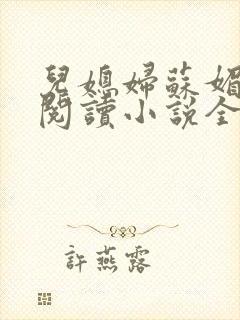 兒媳婦蘇媚
閱讀小說全
許燕露